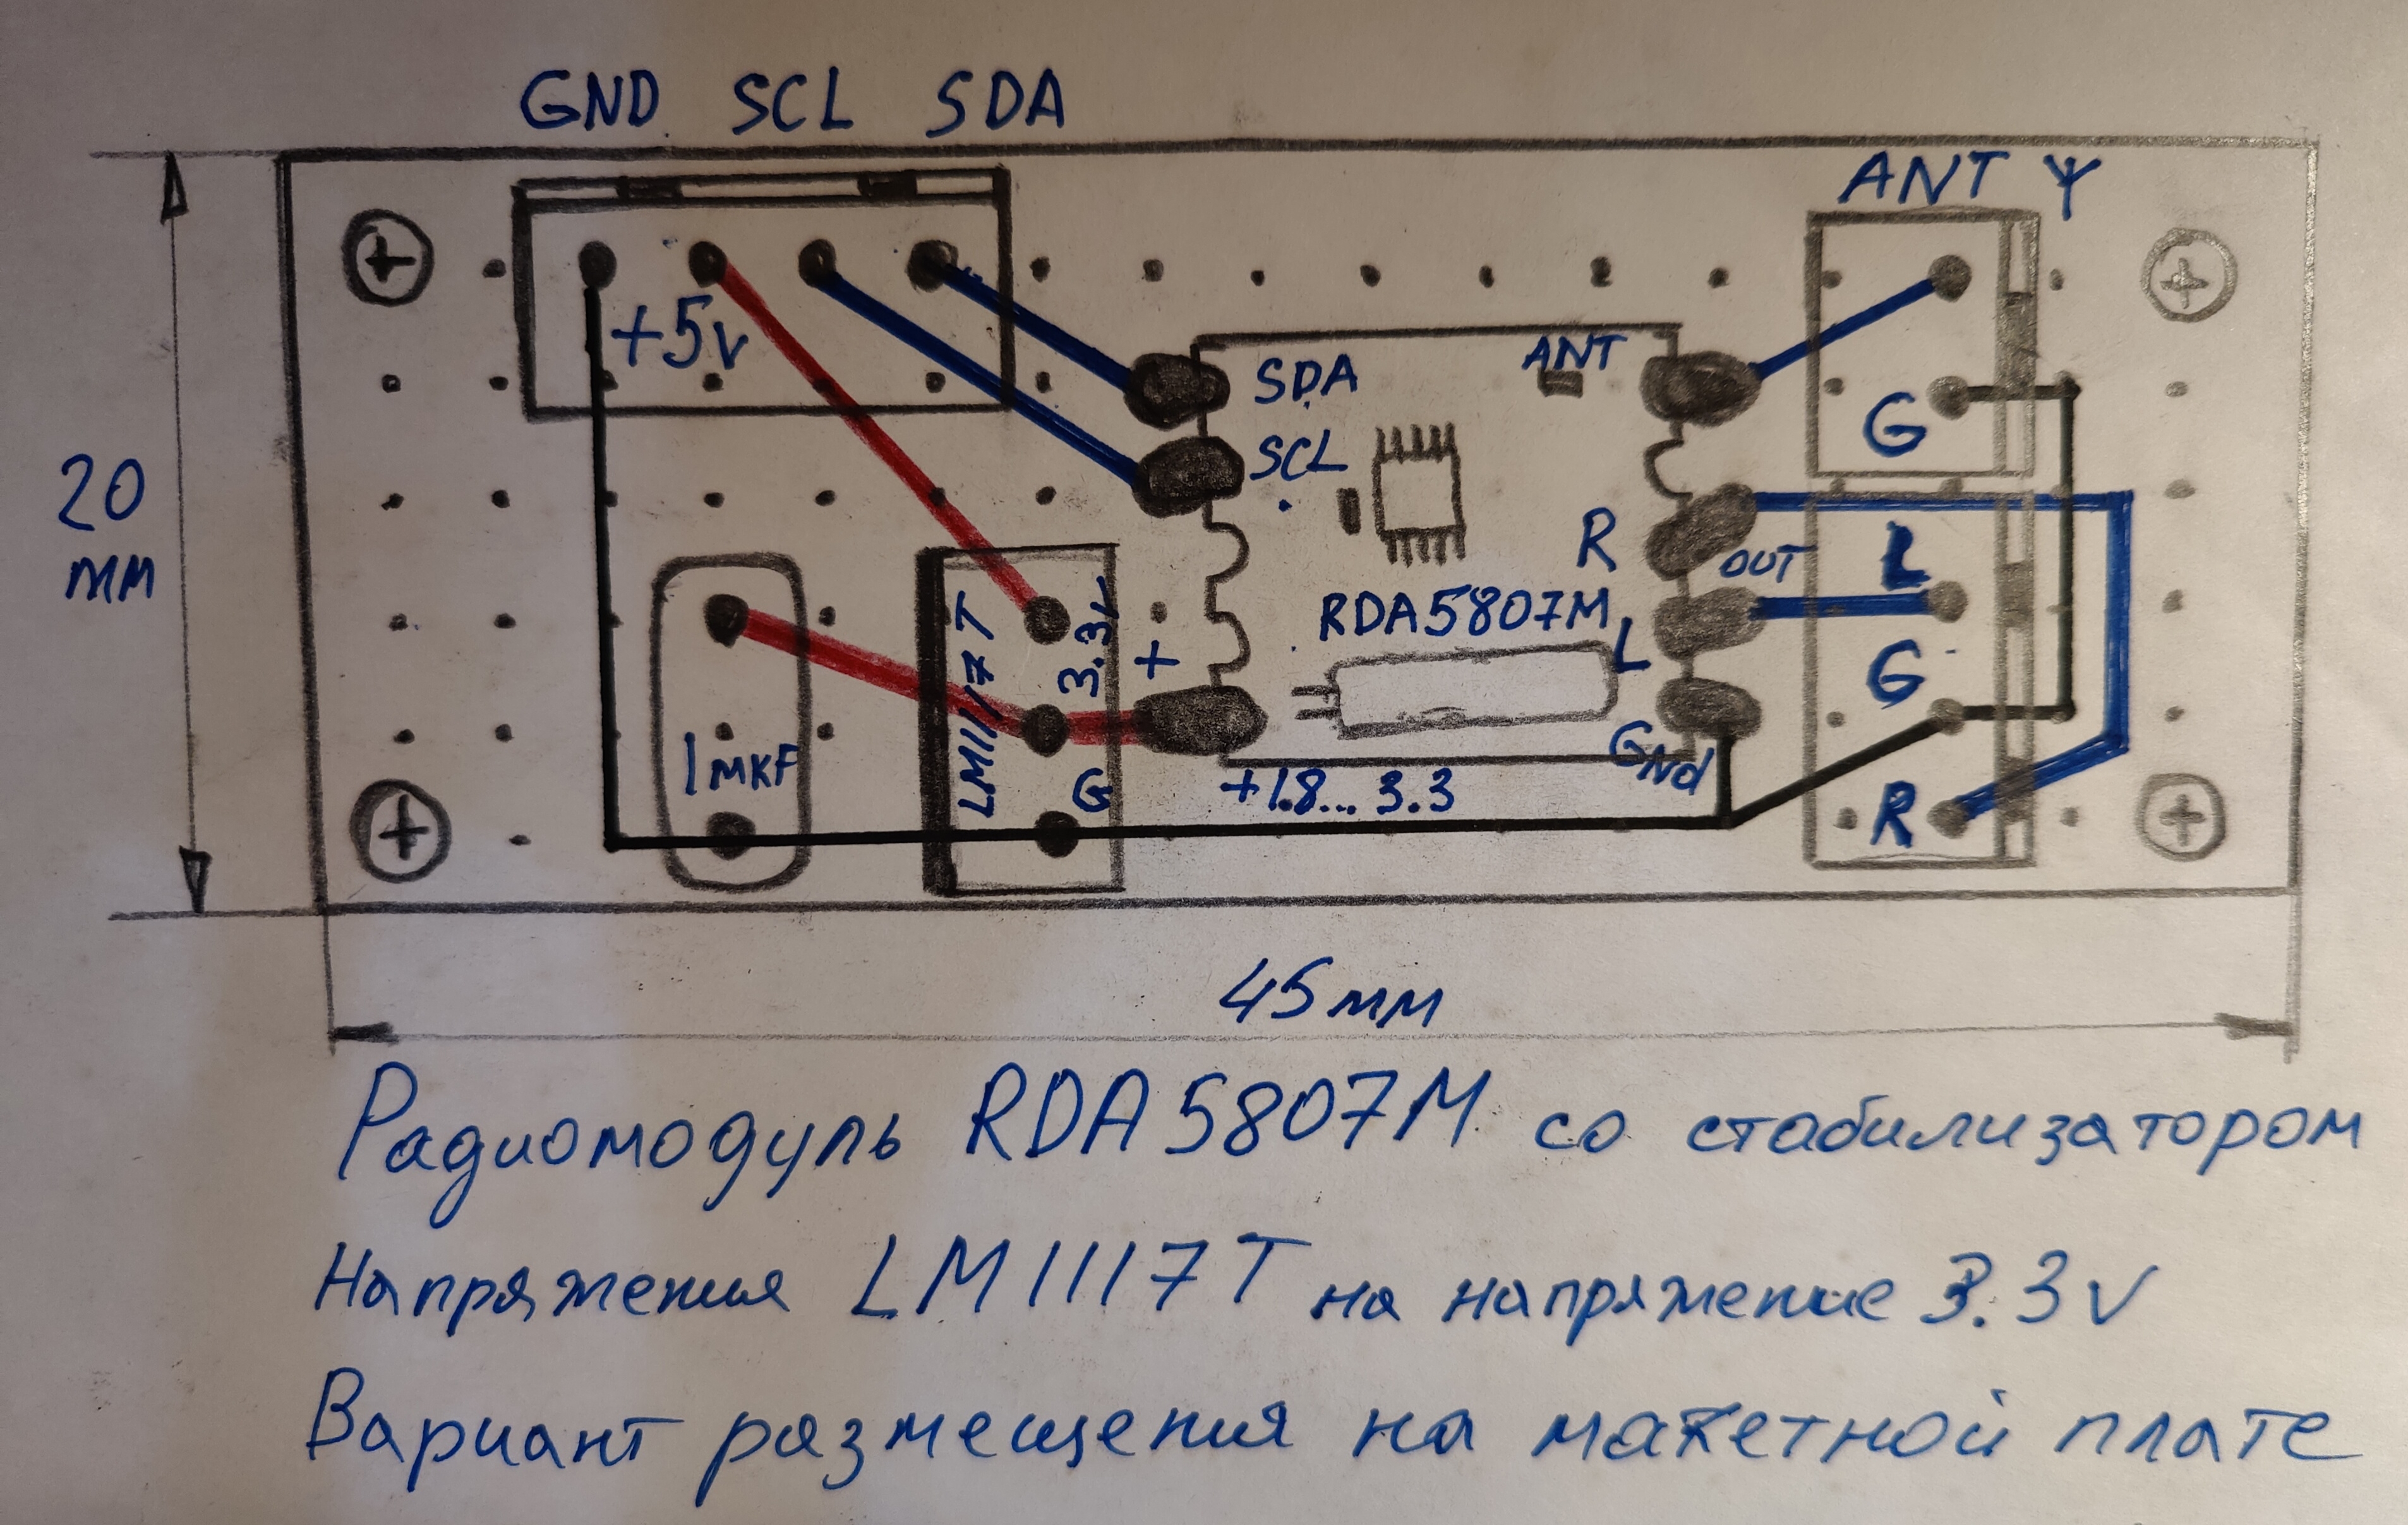 GND SCL SDA
ANT
+5v
SDA
ANT
SCL
G
20
мм
R
OUT
L
RDA5807M
LM1117T
3.3v
+
L
G
1мкF
G
GNd
+1.8... 3.3
R
45мм
Радиомодуль RDA5807M со стабилизатором
Напряжения LM1117T на напряжение 3.3v
Вариант размещения на макетной плате